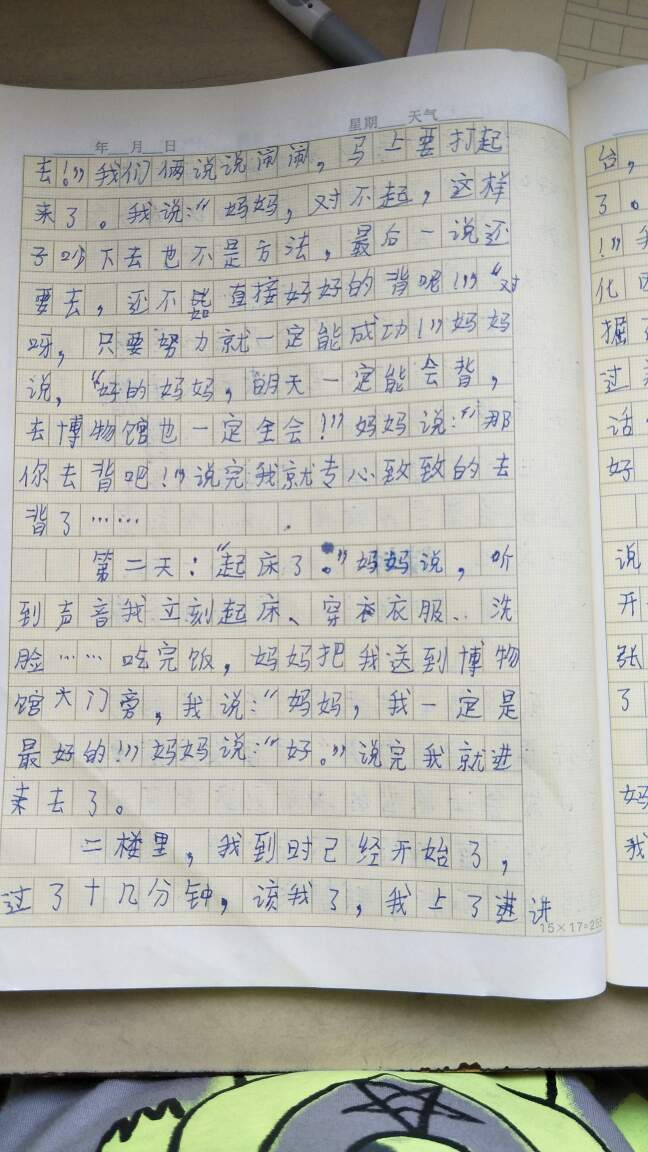 年 月 日 星期 天气
去!”我们俩说说闹闹,马上要打起
来了。我说:“妈妈,对不起,这样
子吵下去也不是方法,最后一说还
要去,还不如直接好好的背吧!”“对
呀,只要努力就一定能成功!”妈妈
说,“好的妈妈,明天一定能会背,
去博物馆也一定全会!”妈妈说:“那
你去背吧!”说完我就专心致致的去
背了……
第二天:“起床了。”妈妈说,听
到声音我立刻起床、穿衣衣服、洗
脸……吃完饭,妈妈把我送到博物
馆大门旁,我说:“妈妈,我一定是
最好的!”妈妈说:“好。”说完我就进
来去了。
二楼里,我到时已经开始了,
过了十几分钟,该我了,我上了进讲
15×17=255
台,
了。
!”我
化
掘
过
话
好
说
开
张
了
妈
我